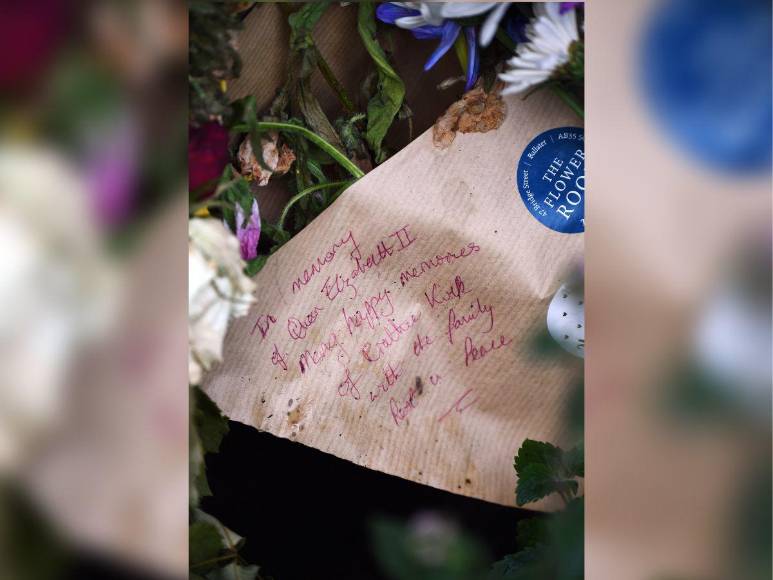 In memory
of Queen Elizabeth II
Many happy memories
of Crathie Kirk
with the family
Rest in Peace
47 Bridge Street | Ballater | AB35
THE
FLOWER
ROO